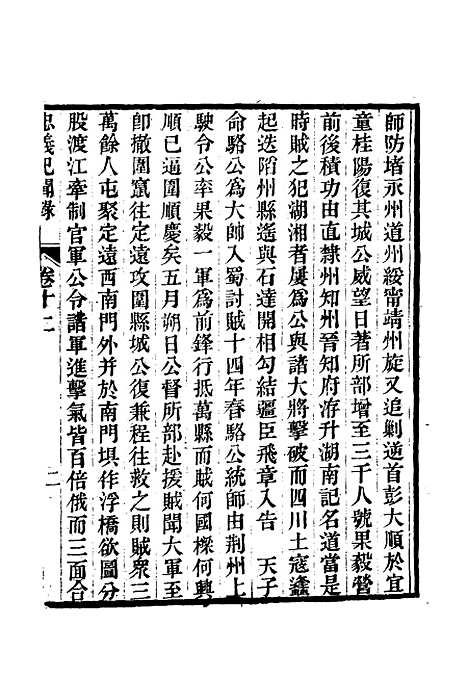 師防堵永州道州綏甯靖州旋又追剿逆首彭大順於宜
童桂陽復其城公威望日著所部增至三千人號果毅營
前後積功由直隷州知州晉知府洊升湖南記名道當是
時賊之犯湖湘者屢為公與諸大將擊破而四川土寇蠭
起迭陷州縣遙與石達開相勾結疆臣飛章入告　天子
命駱公為大帥入蜀討賊十四年春駱公統師由荆州上
駛令公率果毅一軍為前鋒行抵萬縣而賊何國樑何興
順已逼圍順慶矣五月朔日公督所部赴援賊聞大軍至
卽撤圍竄往定遠攻圍縣城公復兼程往救之則賊眾三
萬餘人屯聚定遠西南門外并於南門垻作浮橋欲圖分
股渡江牽制官軍公令諸軍進擊氣皆百倍俄而三面合
忠義紀聞錄
卷十二
二